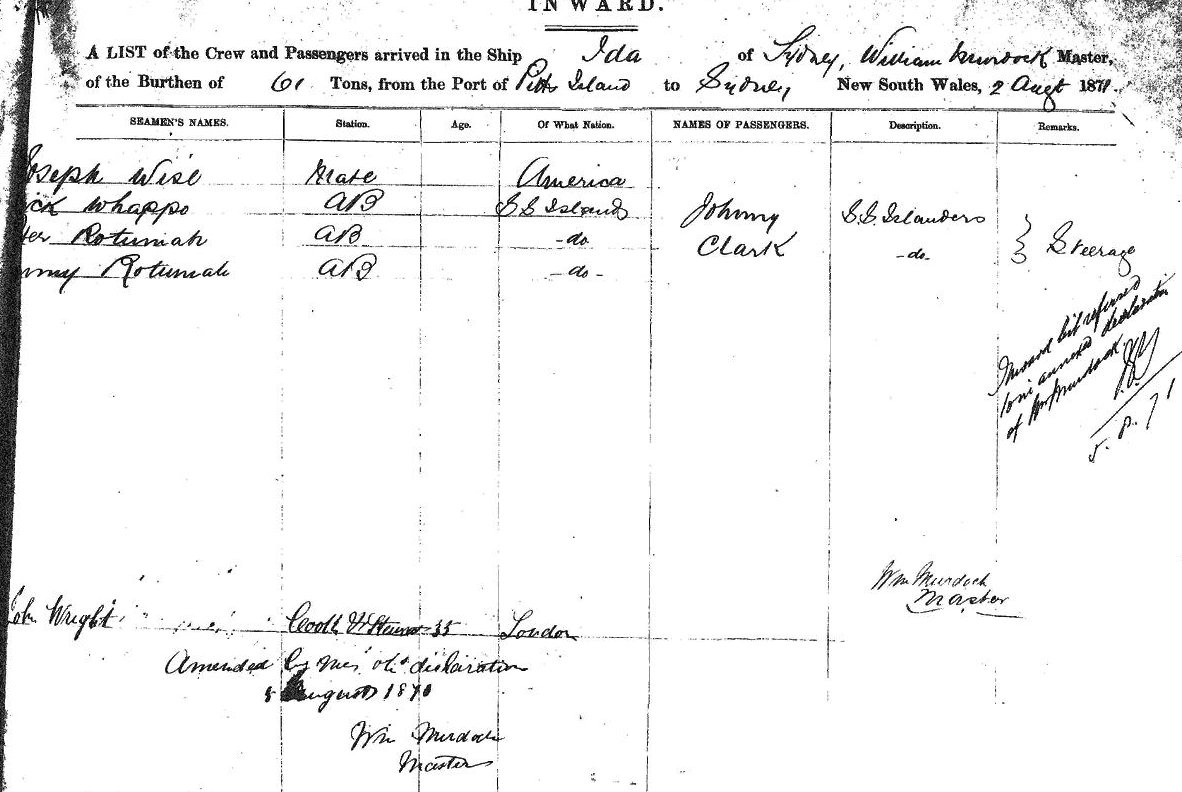 INWARD.
A LIST of the Crew and Passengers arrived in the Ship Ida of Sydney, William Murdock Master,
of the Burthen of 61 Tons, from the Port of Pitts Island to Sydney New South Wales, 2 Augt 1871.
SEAMEN'S NAMES. Station. Age. Of What Nation. NAMES OF PASSENGERS. Description. Remarks.
Joseph Wise Mate America
ick Whappo AB S S Islands Johnny S.S. Islanders
ter Rotumah AB -do Clark -do- } Steerage
mmy Rotumah AB -do-
Inward list refused
annexed declaration
of Wm Murdock
5.8.71
Wm Murdoch
Master
John Wright Cook & Steward 35 London
Amended by me declaration
8 August 1871
Wm Murdoch
Master